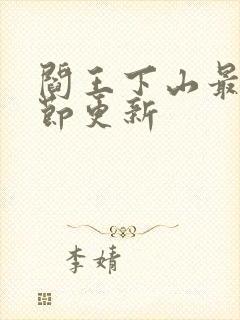 閻王下山最
節更新
李婧